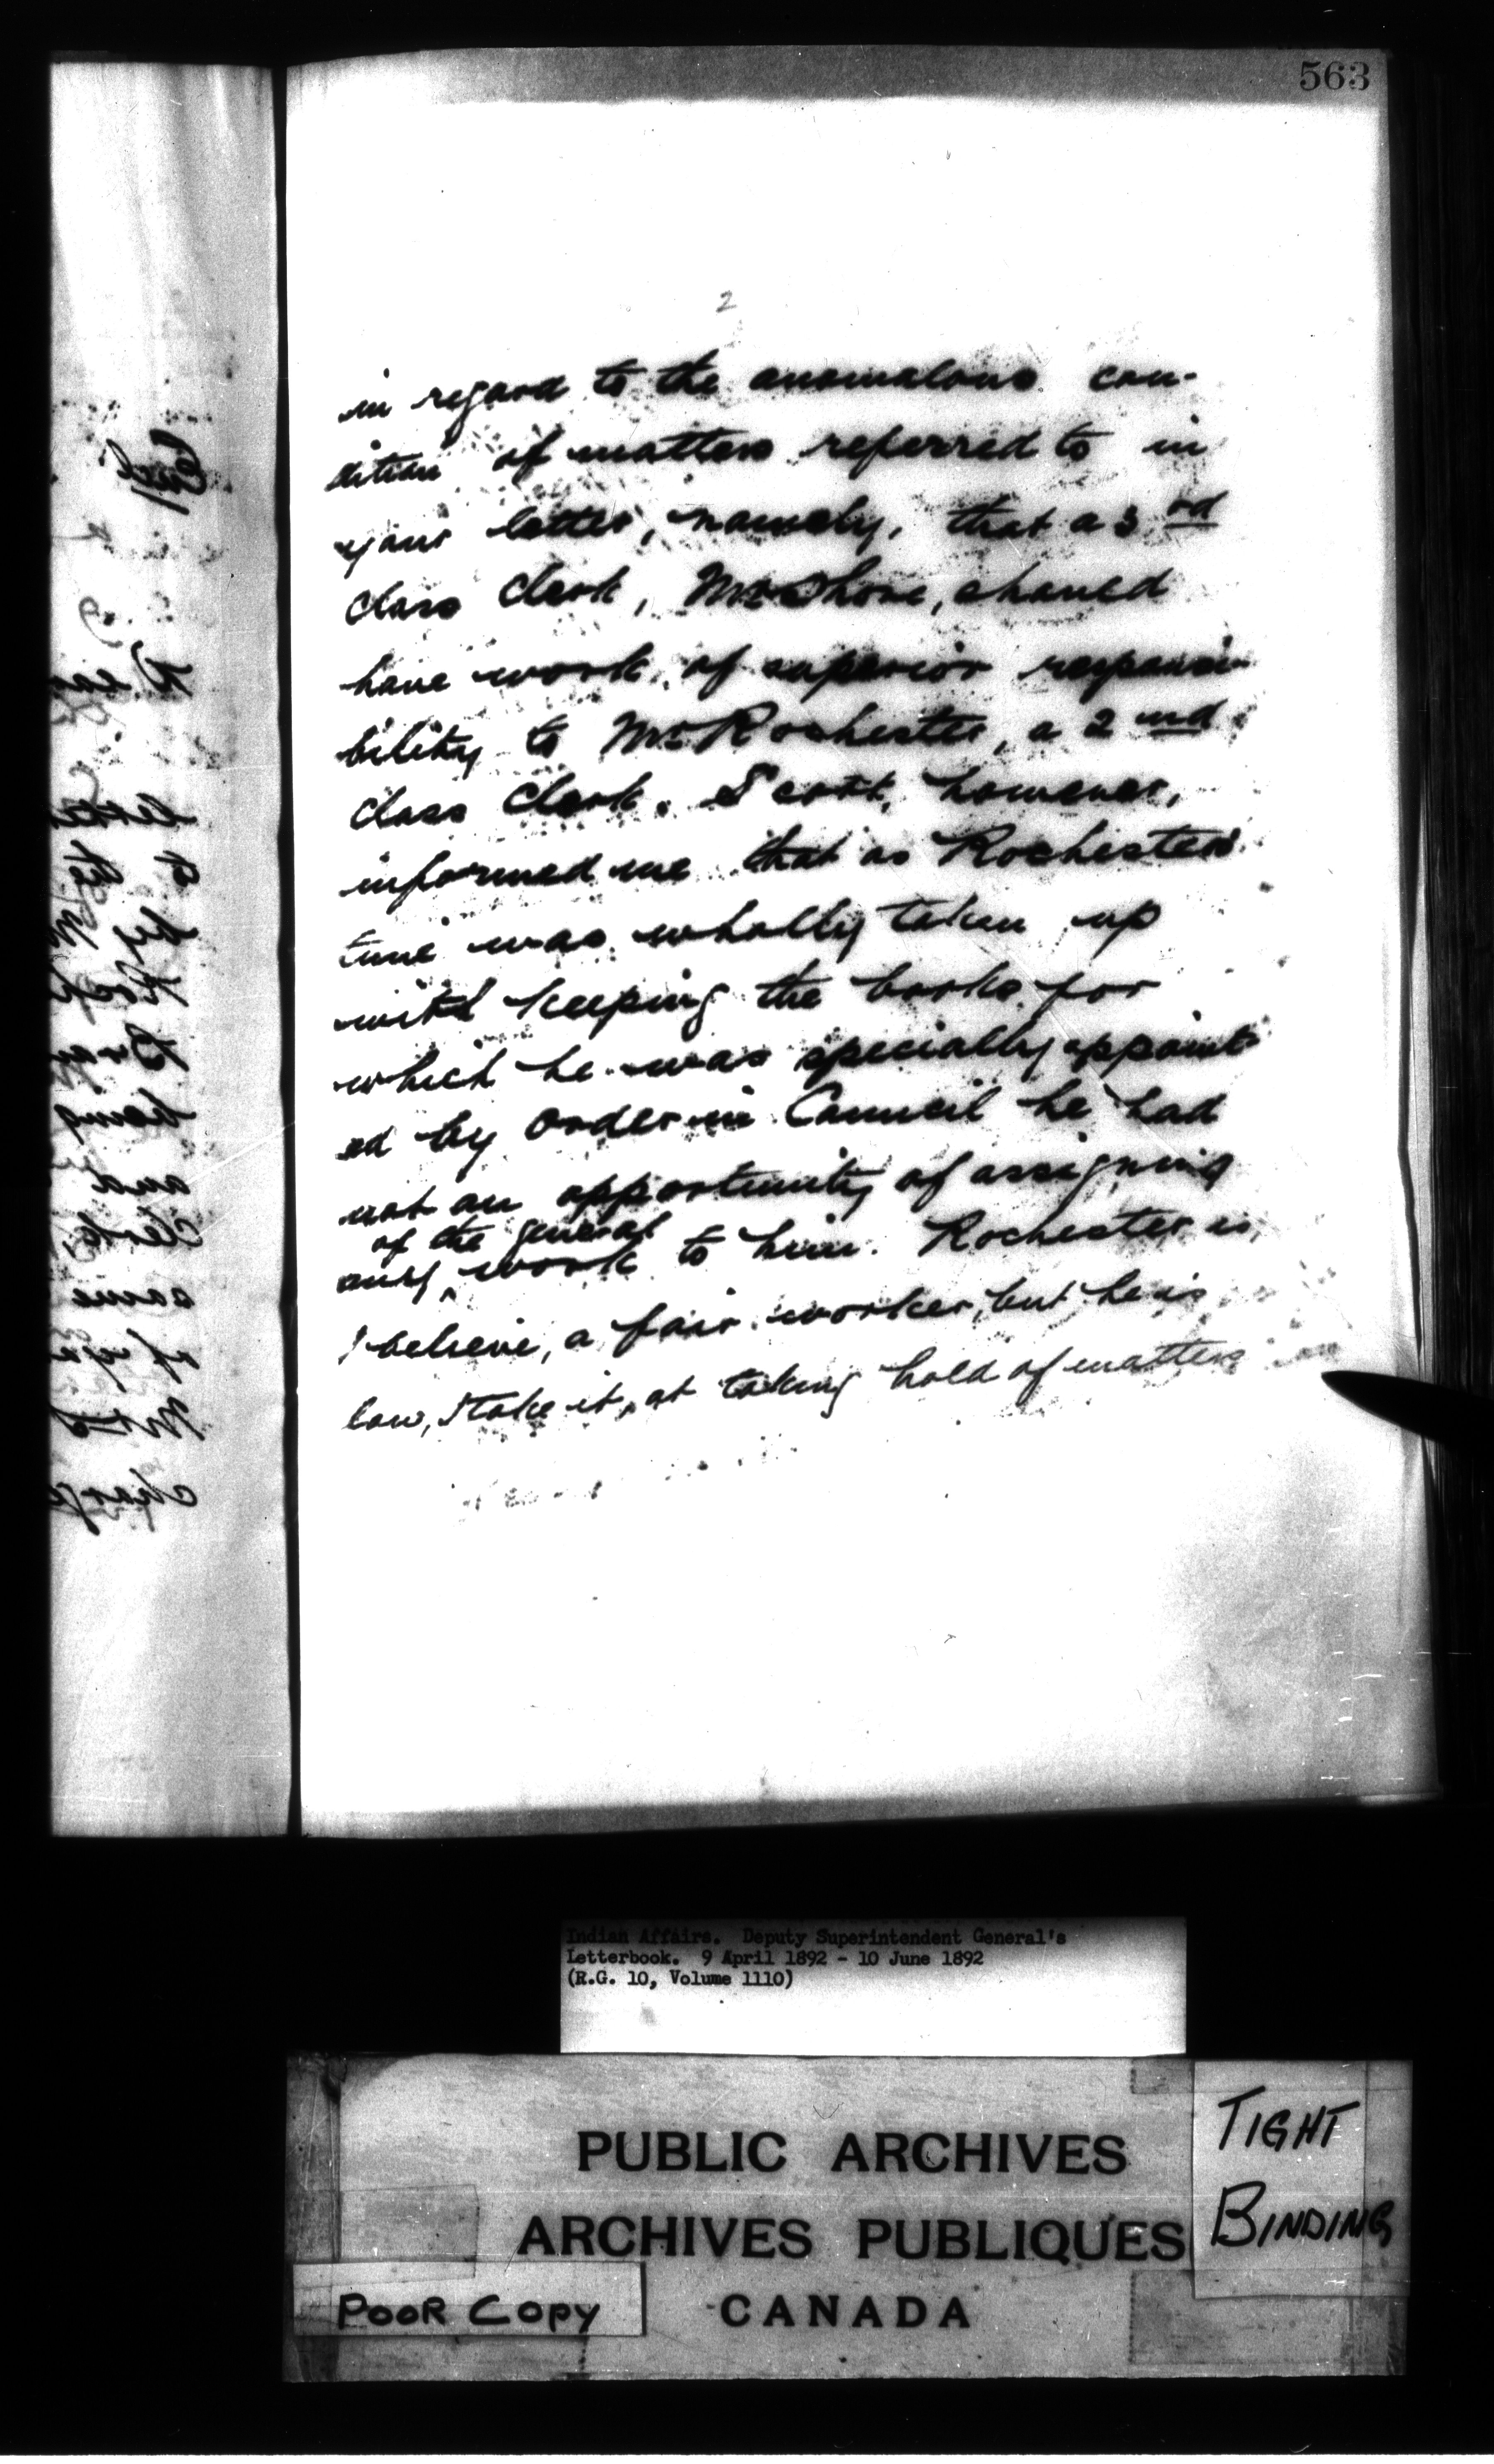 563
2
in regard to the anomalous con-
dition of matters referred to in
your letter, namely, that a 3rd
class Clerk, Mr Shore, should
have work of superior responsi-
bility to Mr Rochester, a 2nd
class Clerk. Scott, however,
informed me that as Rochester's
time was wholly taken up
with keeping the books for
which he was specially appoint-
ed by Order in Council he had
not an opportunity of assigning
of the general
any work to him. Rochester is,
I believe, a fair worker, but he is
slow, I take it, at taking hold of matters
Indian Affairs. Deputy Superintendent General's
Letterbook. 9 April 1892 - 10 June 1892
(R.G. 10, Volume 1110)
PUBLIC ARCHIVES
ARCHIVES PUBLIQUES
CANADA
TIGHT
BINDING
POOR COPY